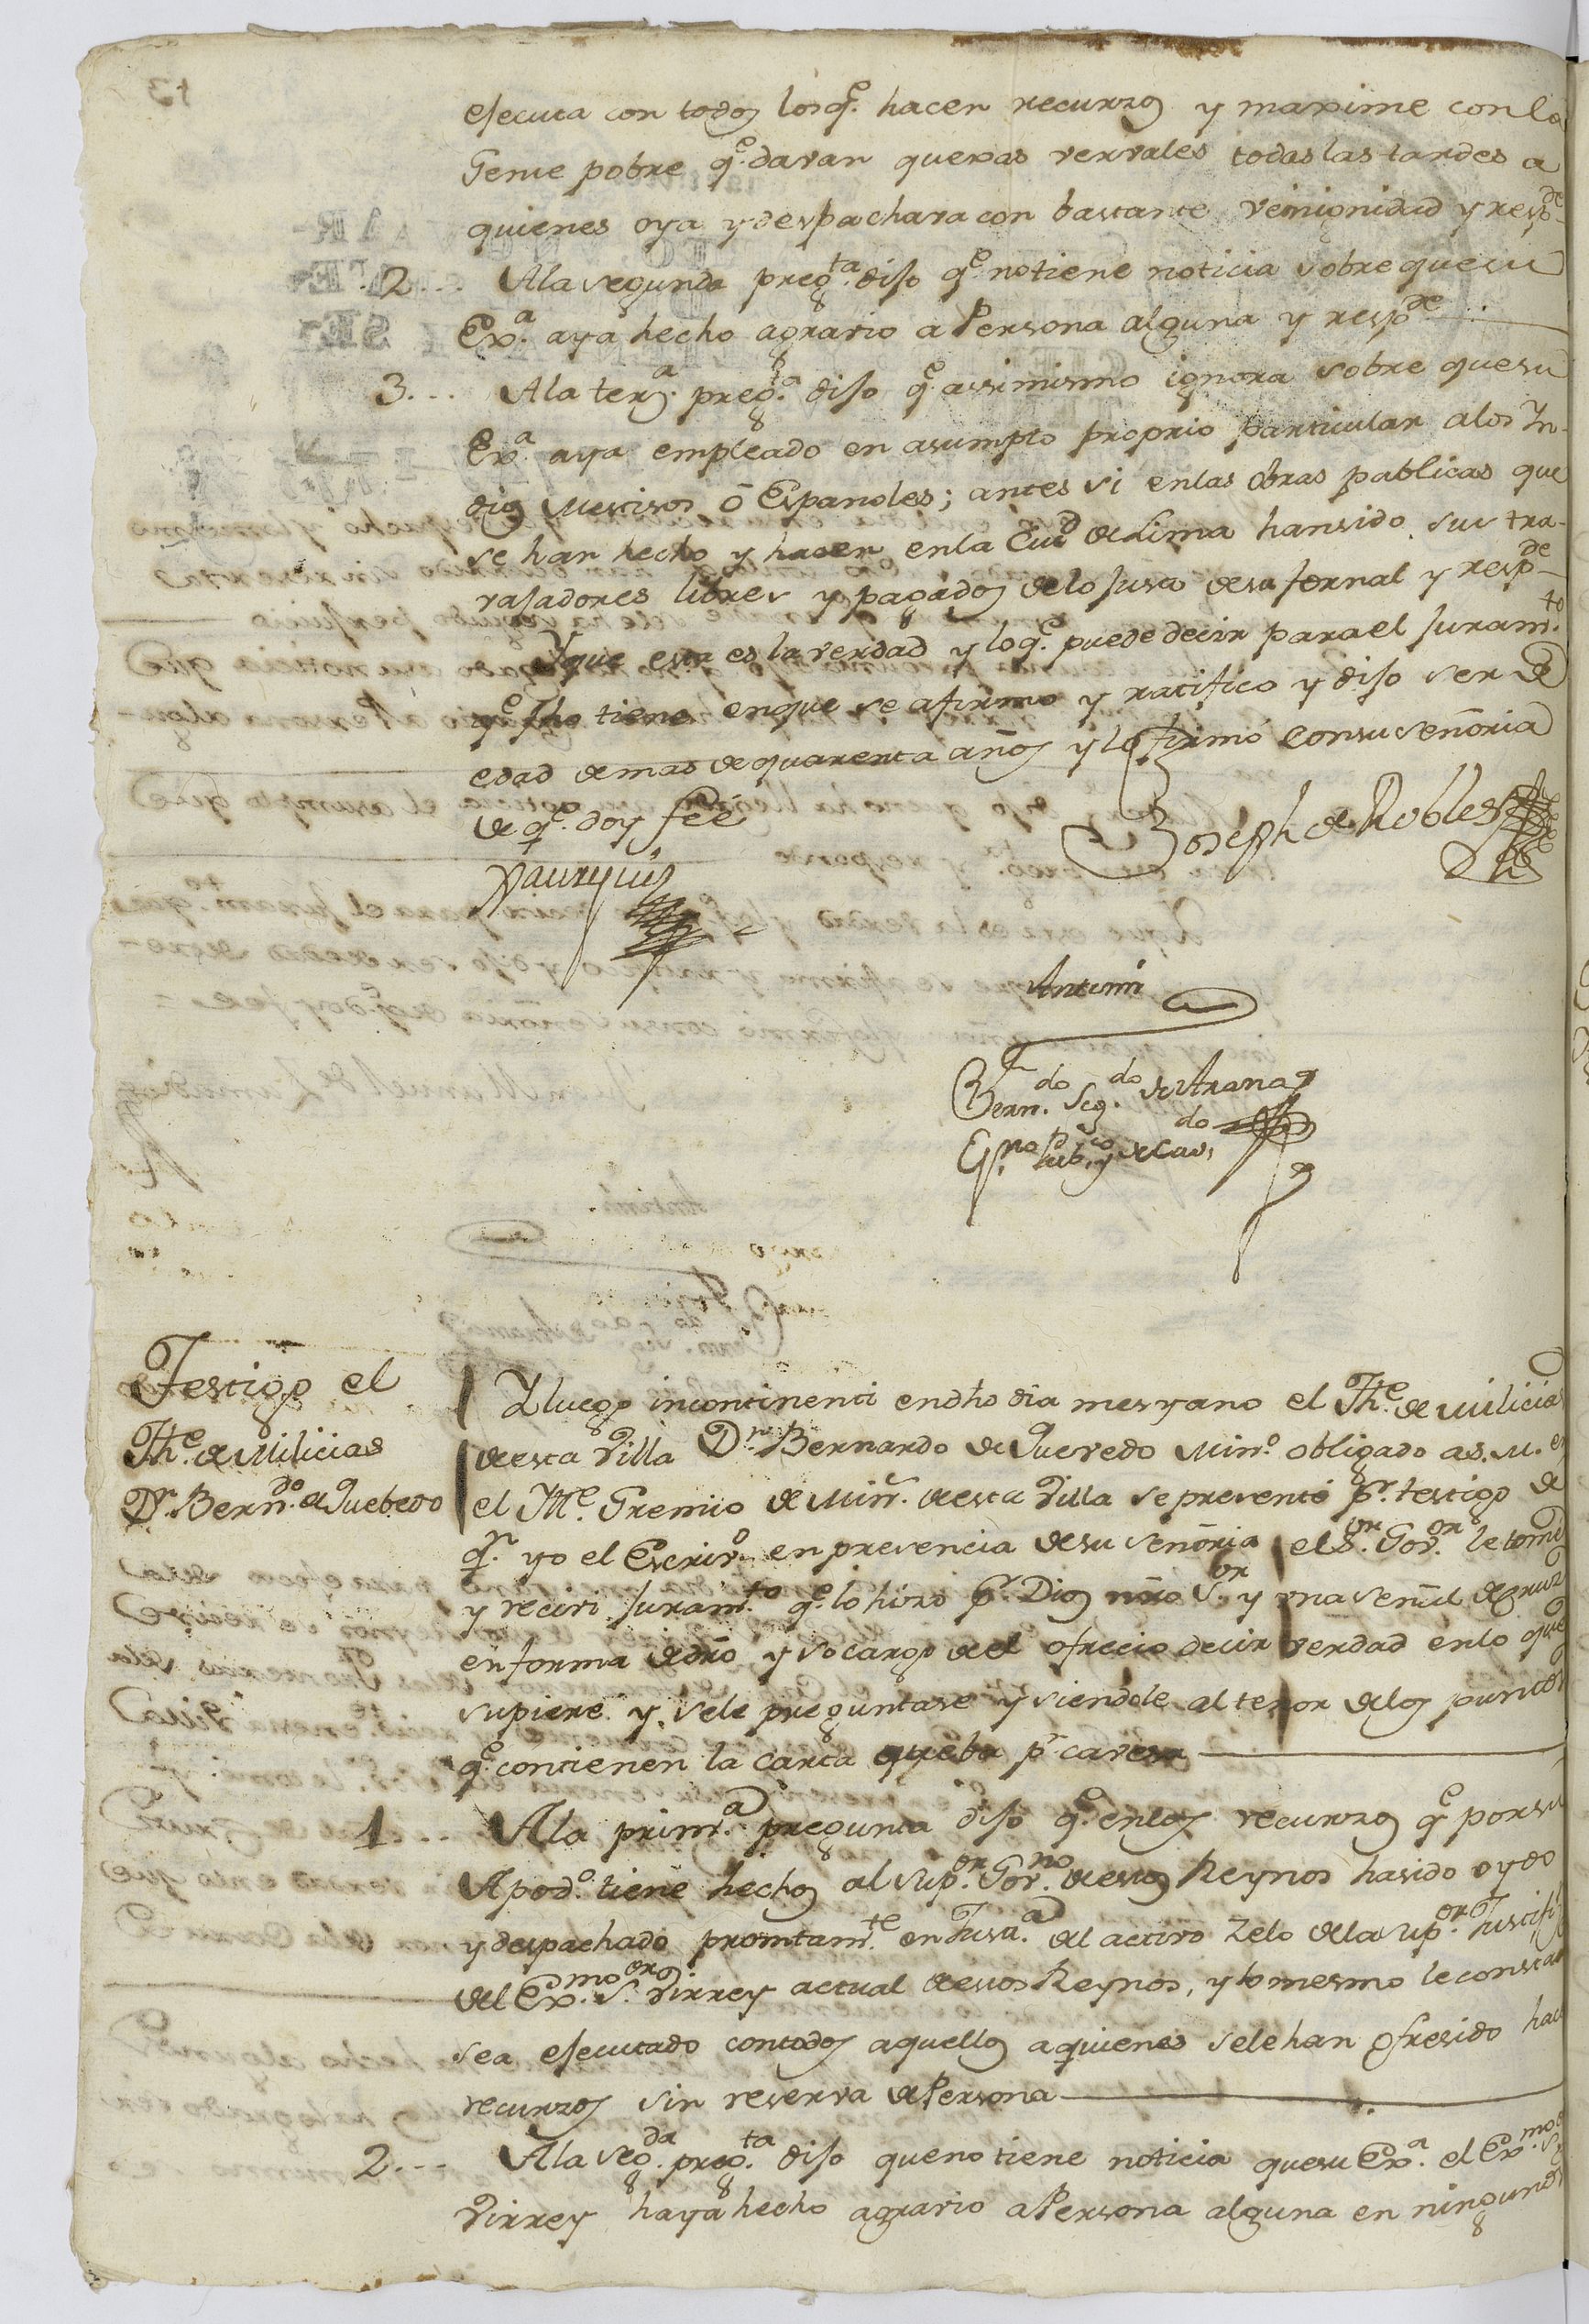 esecuta con todos los q.e hacen recurzos y maxime con la
Gente pobre q.e davan quexas vervales todas las tardes a
quienes oya y despachava con bastante venignidad y resp.de
2... A la segunda preg.ta diso q.e no tiene noticia sobre que su
Ex.a aya hecho agravio a Persona alguna y resp.de
3... A la terz.a preg.ta diso q.e assimismo ignora sobre que su
Ex.a aya empleado en asumpto proprio particular a los In-
dios Mestisos ó Españoles; antes si en las obras publicas que
se han hecho y hacen en la Ciu.d de Lima han sido sus tra-
vasadores libres y pagados de lo Justo de su Jornal y resp.de
Y que esta es la verdad y lo q.e puede decir para el Juram.to
q.e fho tiene en que se afirmo y ratifico y diso ser de
edad de mas de quarenta años y lo firmó con su señoria
de q.e doy feé
Joseph de Robles
Antemi
Bern.do Seg.do de Arana
Es.no Pub.co y de Cav.do
Testigo el
The. de Milicias
Dn. Bern.do de Quebedo
Y luego incontinenti en dho dia mes y ano el The. de Milicias
de esta Villa Dn. Bernardo de Quevedo Min.o obligado a S. M. en
el Ille. Gremio de Min.s de esta Villa se presento pr. testigo de
q.n yo el Escriv.o en presencia de su señoria el S.or Gov.or le tomé
y reciví Juram.to q.e lo hizo pr. Dios nro S.or y una señal de cruz
en forma de dro y so cargo de el ofrecio decir verdad en lo que
supiere y se le preguntare y siendole al tenor de los puntos
q.e contienen la carta queba pr. cavesa
1... A la prim.a pregunta diso q.e en los recurzos q.e por su
Apod.o tiene hechos al Sup.or Gov.no de estos Reynos ha sido oydo
y despachado promtam.te en Justa. al activo Zelo de la Sup.or Justifi
del Ex.mo S.or Virrey actual de estos Reynos, y lo mesmo le consta
sea esecutado con todos aquellos a quienes se le han ofresido hac
recurzos sin reserva de Persona
2... A la seg.da preg.ta diso que no tiene noticia que su Ex.a el Ex.mo S.
Virrey haya hecho agravio a Persona alguna en ninguno